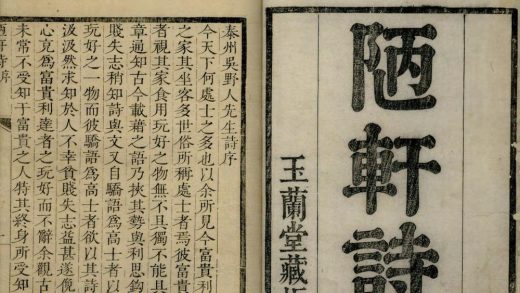 陋軒詩
玉蘭堂藏
泰州吳野人先生詩序
今天下何處士之多也以余所見今富貴利
之家其坐客多世俗所稱處士者焉彼富貴
者視其家食用玩好之物無不具獨不能具
章通知古今載藉之語乃挾其勢與利恩鈎
賤失志稍知詩與文又自驕語爲高士者以
玩好之一物而彼驕語爲高士者欲以其詩
心竟爲富貴利達者之玩好而不辭余觀古
汲汲然求知於人不幸貧賤失志益甚遂俛
未常不受知于富貴之人特其終身所受知